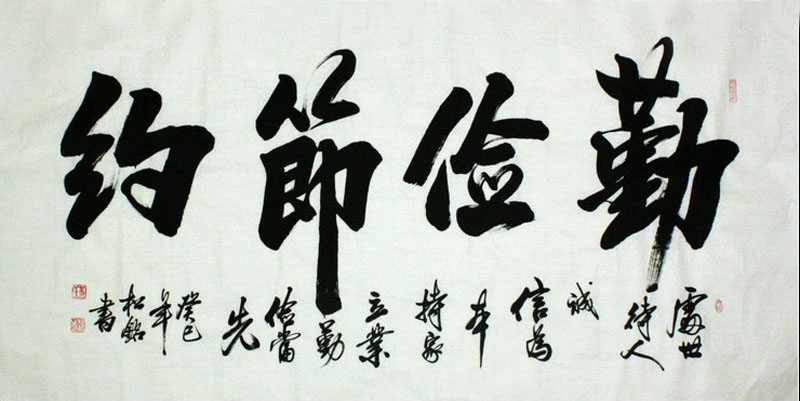 勤俭節约
處世
待人
誠
信为
本
持家
立業
勤
俭當
先
癸巳
年
松
書